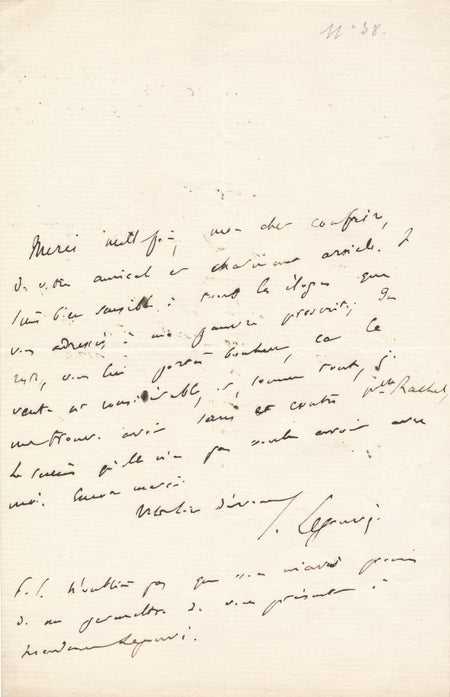 N° 38.
Merci mille fois, mon cher confrère,
de votre amical et charmant article. Je
suis bien sensible à tous les éloges que
vous adressez à ma pauvre proscrite; du
reste, vous lui portez bonheur, car la
vente est considérable, et, somme toute, je
me trouve avoir sans et contre Mlle Rachel,
le succès qu'elle n'a pas voulu avoir avec
moi. Encore merci.
E. Legouvé.
P.S. N'oubliez pas que vous m'avez promis
de me permettre de vous présenter à
Madame Legouvé.